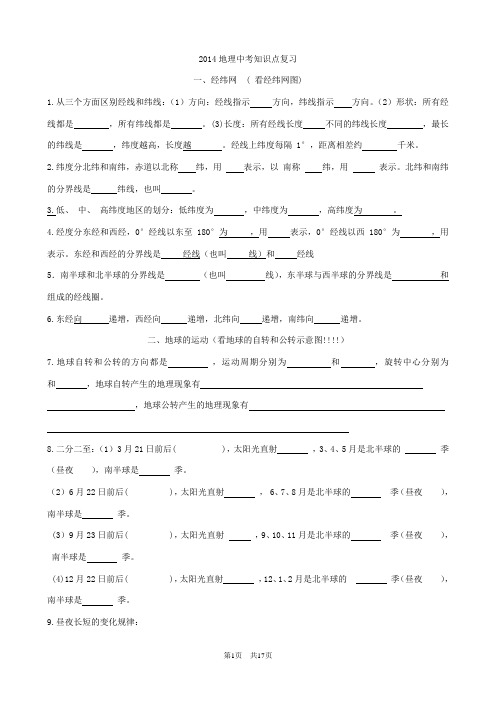 2014地理中考知识点复习
一、经纬网 ( 看经纬网图)
1.从三个方面区别经线和纬线:(1)方向:经线指示____方向,纬线指示____方向。(2)形状:所有经
线都是______,所有纬线都是______。(3)长度:所有经线长度____不同的纬线长度______,最长
的纬线是______,纬度越高,长度越______。经线上纬度每隔 1°,距离相差约______千米。
2.纬度分北纬和南纬,赤道以北称____纬,用____表示,以 南称____纬,用____表示。北纬和南纬
的分界线是____纬线,也叫____。
3.低、 中、 高纬度地区的划分:低纬度为______,中纬度为______,高纬度为______。
4.经度分东经和西经,0°经线以东至 180°为____,用____表示,0°经线以西 180°为______,用
表示。东经和西经的分界线是____经线(也叫____线)和____经线
5. 南半球和北半球的分界线是______(也叫______线),东半球与西半球的分界线是________和
组成的经线圈。
6.东经向____递增,西经向____递增,北纬向____递增,南纬向____递增。
二、地球的运动(看地球的自转和公转示意图!!!!)
7.地球自转和公转的方向都是______,运动周期分别为______和______,旋转中心分别为
和______,地球自转产生的地理现象有____________________
____________,地球公转产生的地理现象有____________________
____________________
8.二分二至:(1)3月21日前后( ),太阳光直射______,3、4、5月是北半球的______季
(昼夜 ),南半球是______季。
(2)6月22日前后( ),太阳光直射______, 6、7、8月是北半球的______季(昼夜 ),
南半球是______季。
(3)9月23日前后( ),太阳光直射____,9、10、11月是北半球的______季(昼夜 ),
南半球是______季。
(4)12月22日前后( ),太阳光直射______,12、1、2月是北半球的______季(昼夜 ),
南半球是______季。
9.昼夜长短的变化规律:
第1页 共17页